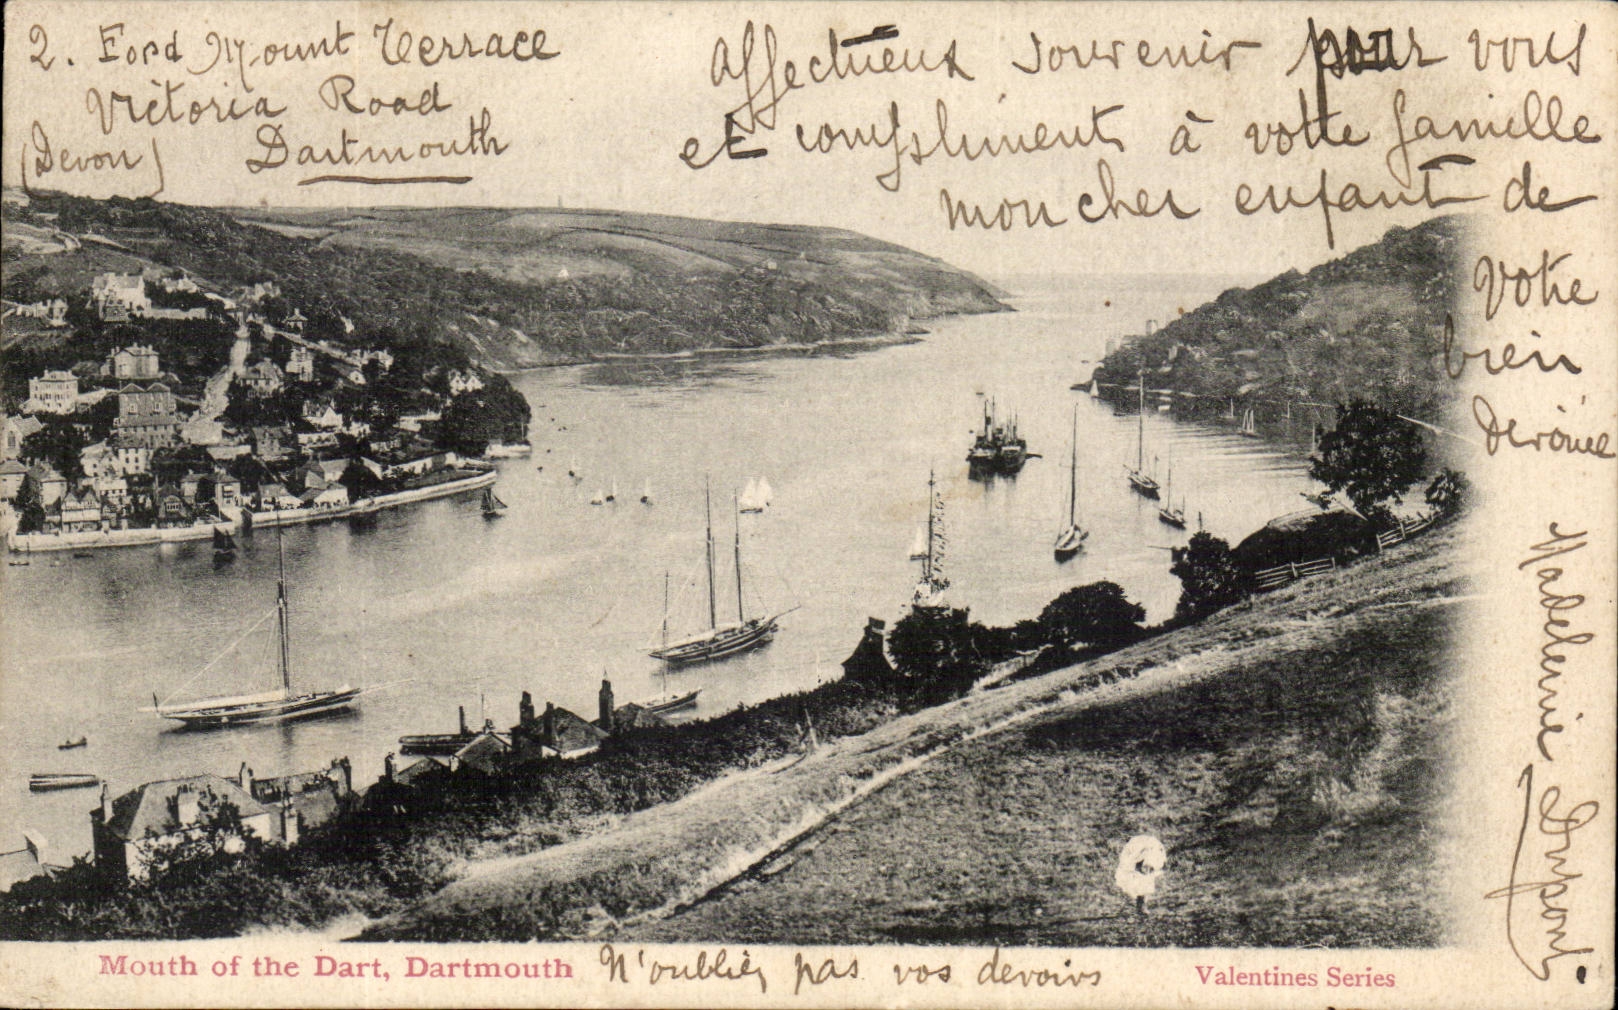 2. Ford Mount Terrace
Victoria Road
(Devon) Dartmouth
Affectueux souvenir pour vous
et compliments à votre famille
mon cher enfant de
votre
bien
dévouée
Madeleine Dupont.
Mouth of the Dart, Dartmouth
N'oubliez pas vos devoirs
Valentines Series